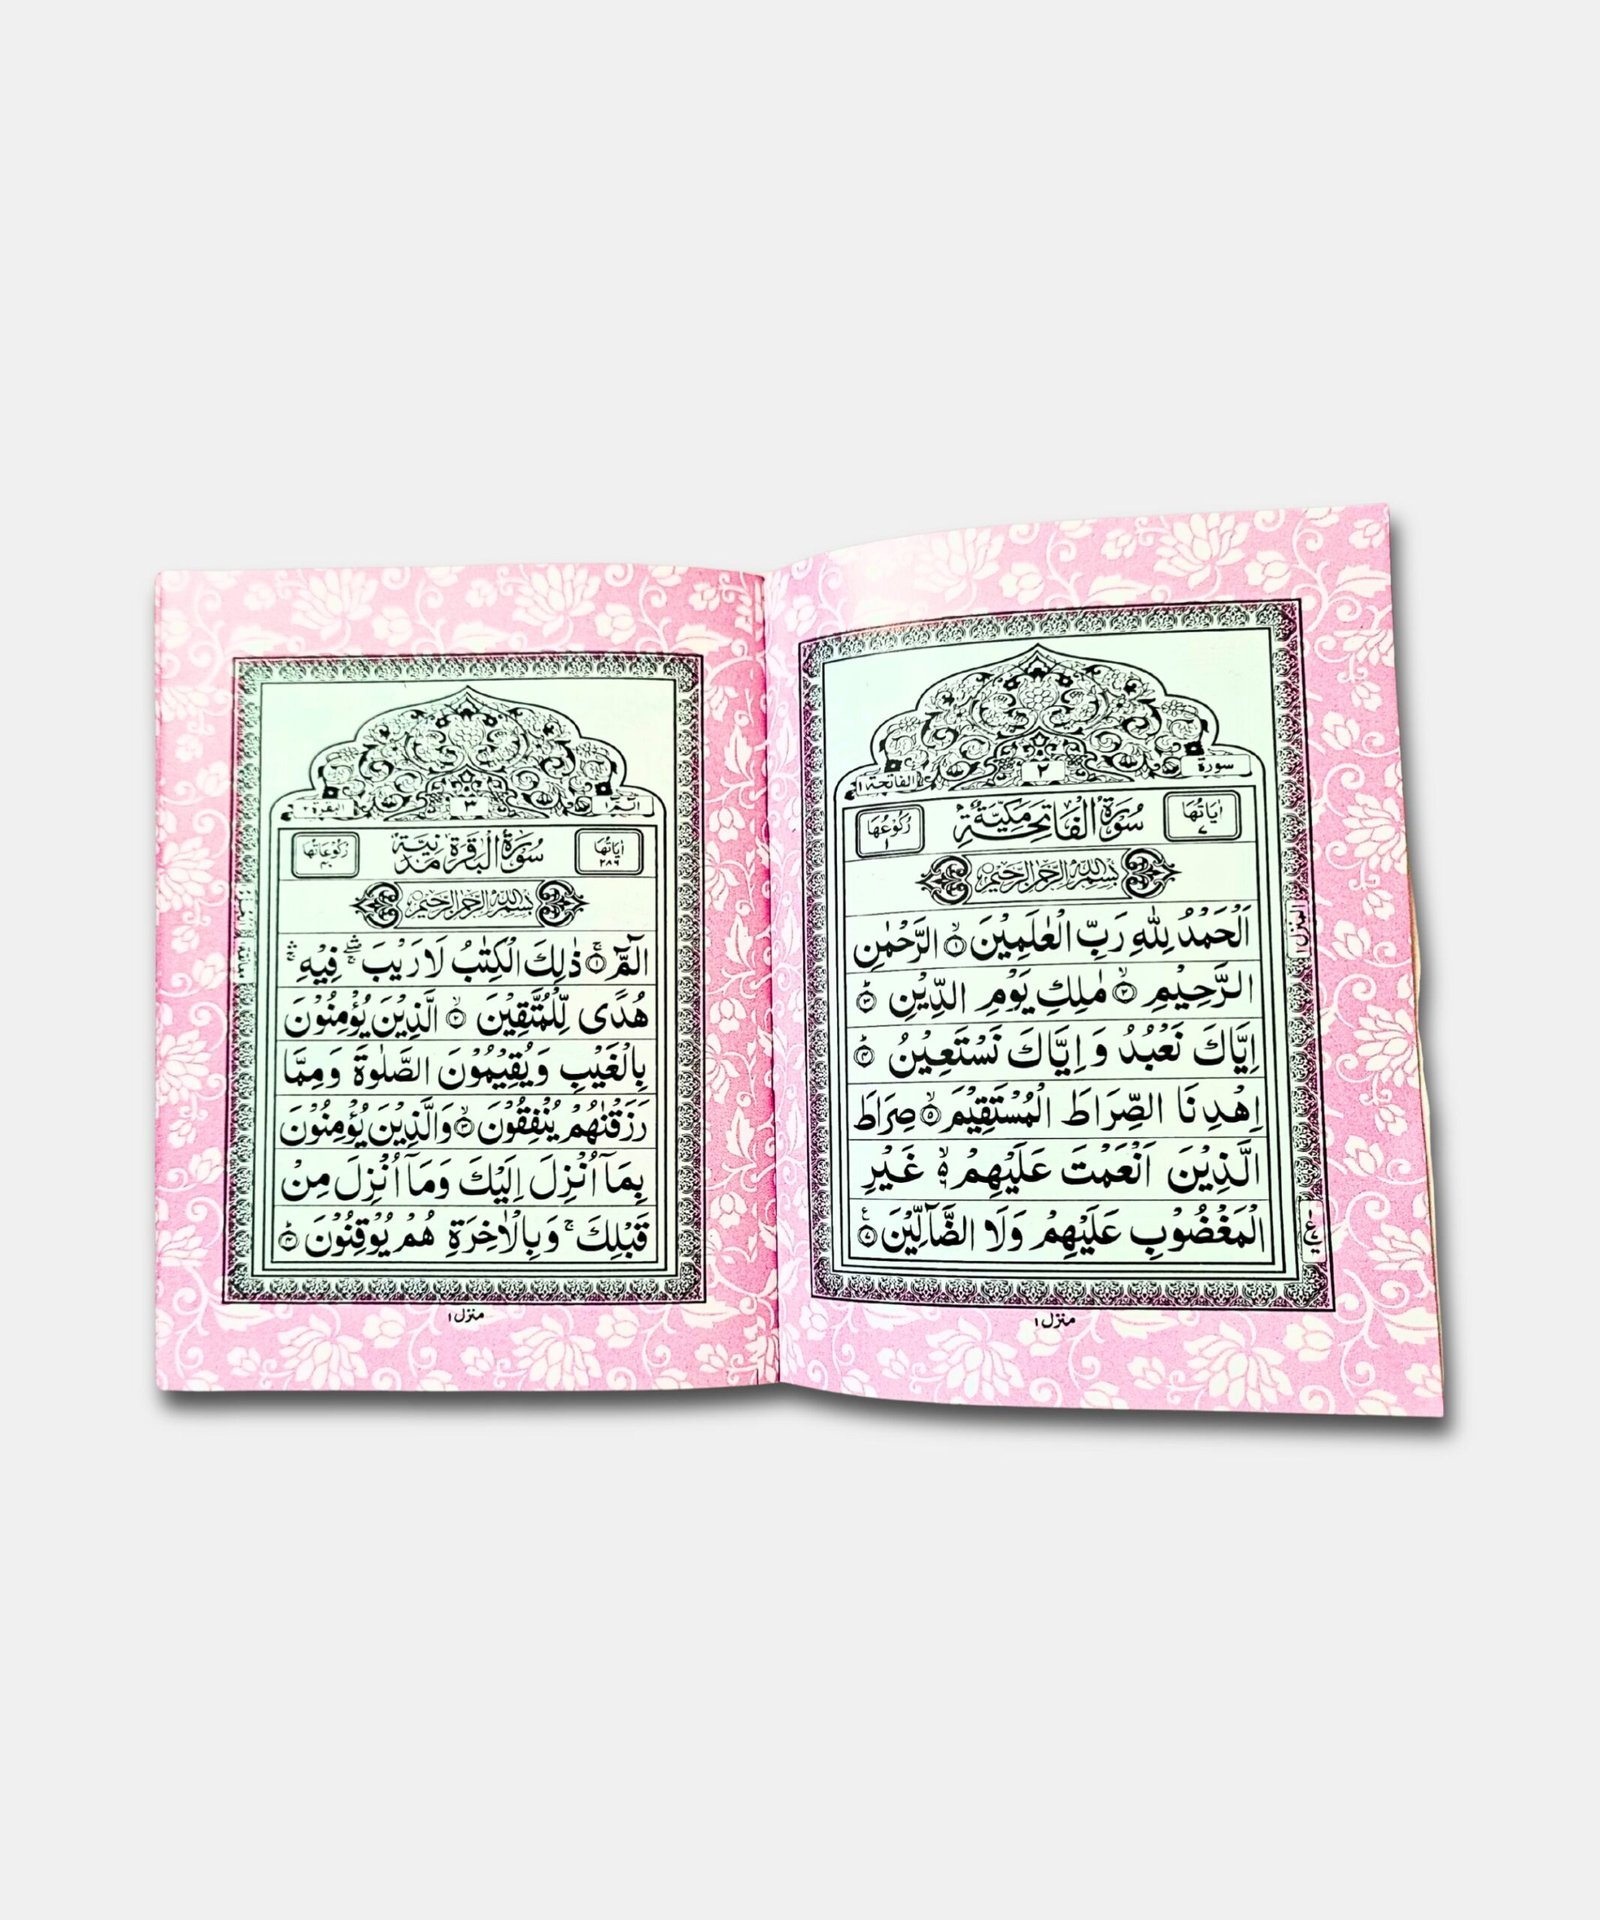 سورة
٢
الفاتحة ١
اٰيَاتُهَا ٧
سُوْرَةُ الْفَاتِحَةِ مَكِّيَّةٌ
رُكُوْعُهَا ١
بِسْمِ اللّٰهِ الرَّحْمٰنِ الرَّحِيْمِ
اَلْحَمْدُ لِلّٰهِ رَبِّ الْعٰلَمِيْنَ ۙ﴿١﴾ الرَّحْمٰنِ
الرَّحِيْمِ ۙ﴿٢﴾ مٰلِكِ يَوْمِ الدِّيْنِ ؕ﴿٣﴾
اِيَّاكَ نَعْبُدُ وَ اِيَّاكَ نَسْتَعِيْنُ ؕ﴿٤﴾
اِهْدِنَا الصِّرَاطَ الْمُسْتَقِيْمَ ۙ﴿٥﴾ صِرَاطَ
الَّذِيْنَ اَنْعَمْتَ عَلَيْهِمْ ۙ٦ غَيْرِ
الْمَغْضُوْبِ عَلَيْهِمْ وَلَا الضَّآلِّيْنَ ﴿٧﴾
منزل ١
الٓمّٓ ١
٣
البقرة ٢
اٰيَاتُهَا ٢٨٦
سُوْرَةُ الْبَقَرَةِ مَدَنِيَّةٌ
رُكُوْعَاتُهَا ٤٠
بِسْمِ اللّٰهِ الرَّحْمٰنِ الرَّحِيْمِ
الٓمّٓ ۚ﴿١﴾ ذٰلِكَ الْكِتٰبُ لَا رَيْبَ ۛۚ فِيْهِ ۛۚ
هُدًى لِّلْمُتَّقِيْنَ ۙ﴿٢﴾ الَّذِيْنَ يُؤْمِنُوْنَ
بِالْغَيْبِ وَيُقِيْمُوْنَ الصَّلٰوةَ وَمِمَّا
رَزَقْنٰهُمْ يُنْفِقُوْنَ ۙ﴿٣﴾ وَالَّذِيْنَ يُؤْمِنُوْنَ
بِمَآ اُنْزِلَ اِلَيْكَ وَمَآ اُنْزِلَ مِنْ
قَبْلِكَ ۚ وَبِالْاٰخِرَةِ هُمْ يُوْقِنُوْنَ ؕ﴿٤﴾
منزل ١